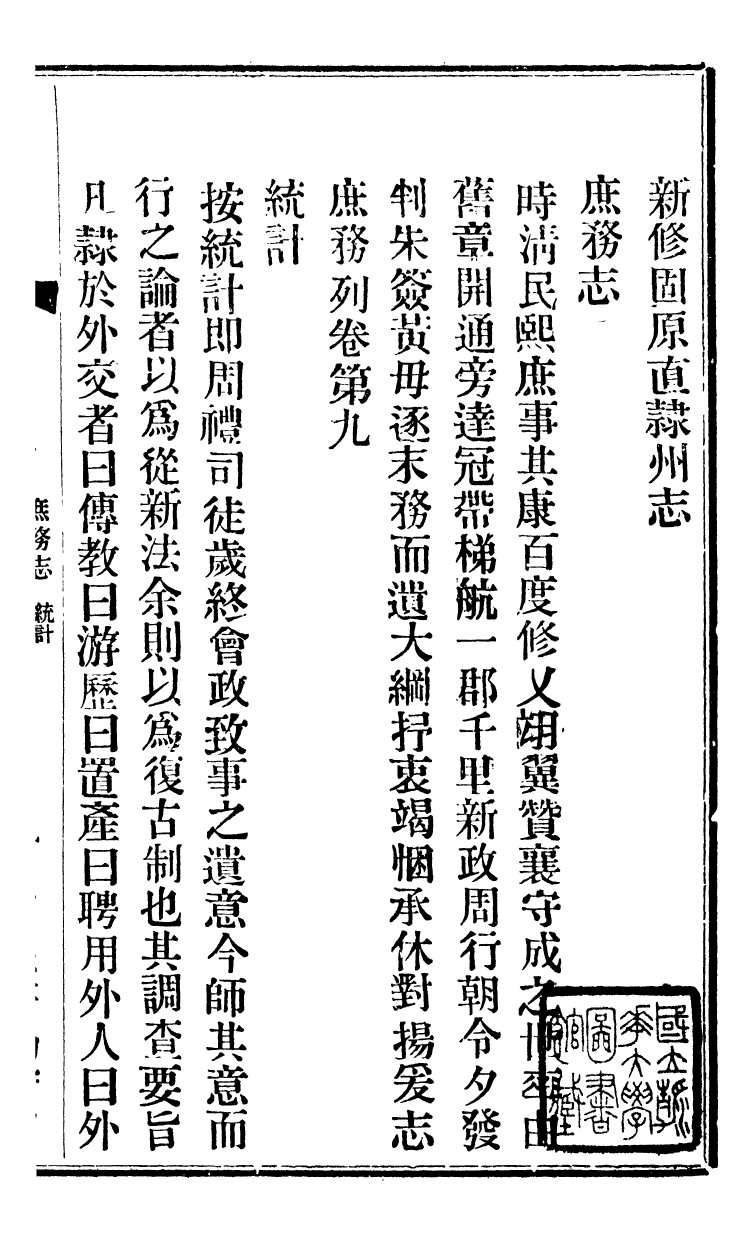 新修固原直隸州志
庶務志
時淸民熙庶事其康百度修乂翊翼贊襄守成之世率由
舊章開通旁達冠帶梯航一郡千里新政周行朝令夕發
判朱簽黃毋逐末務而遺大綱抒衷竭悃承休對揚爰志
庶務列卷第九
統計
按統計即周禮司徒歲終會政致事之遺意今師其意而
行之論者以爲從新法余則以爲復古制也其調查要旨
凡隸於外交者曰傳教曰游歷曰置產曰聘用外人曰外
庶務志 統計
國立
華大學
圖書
館藏